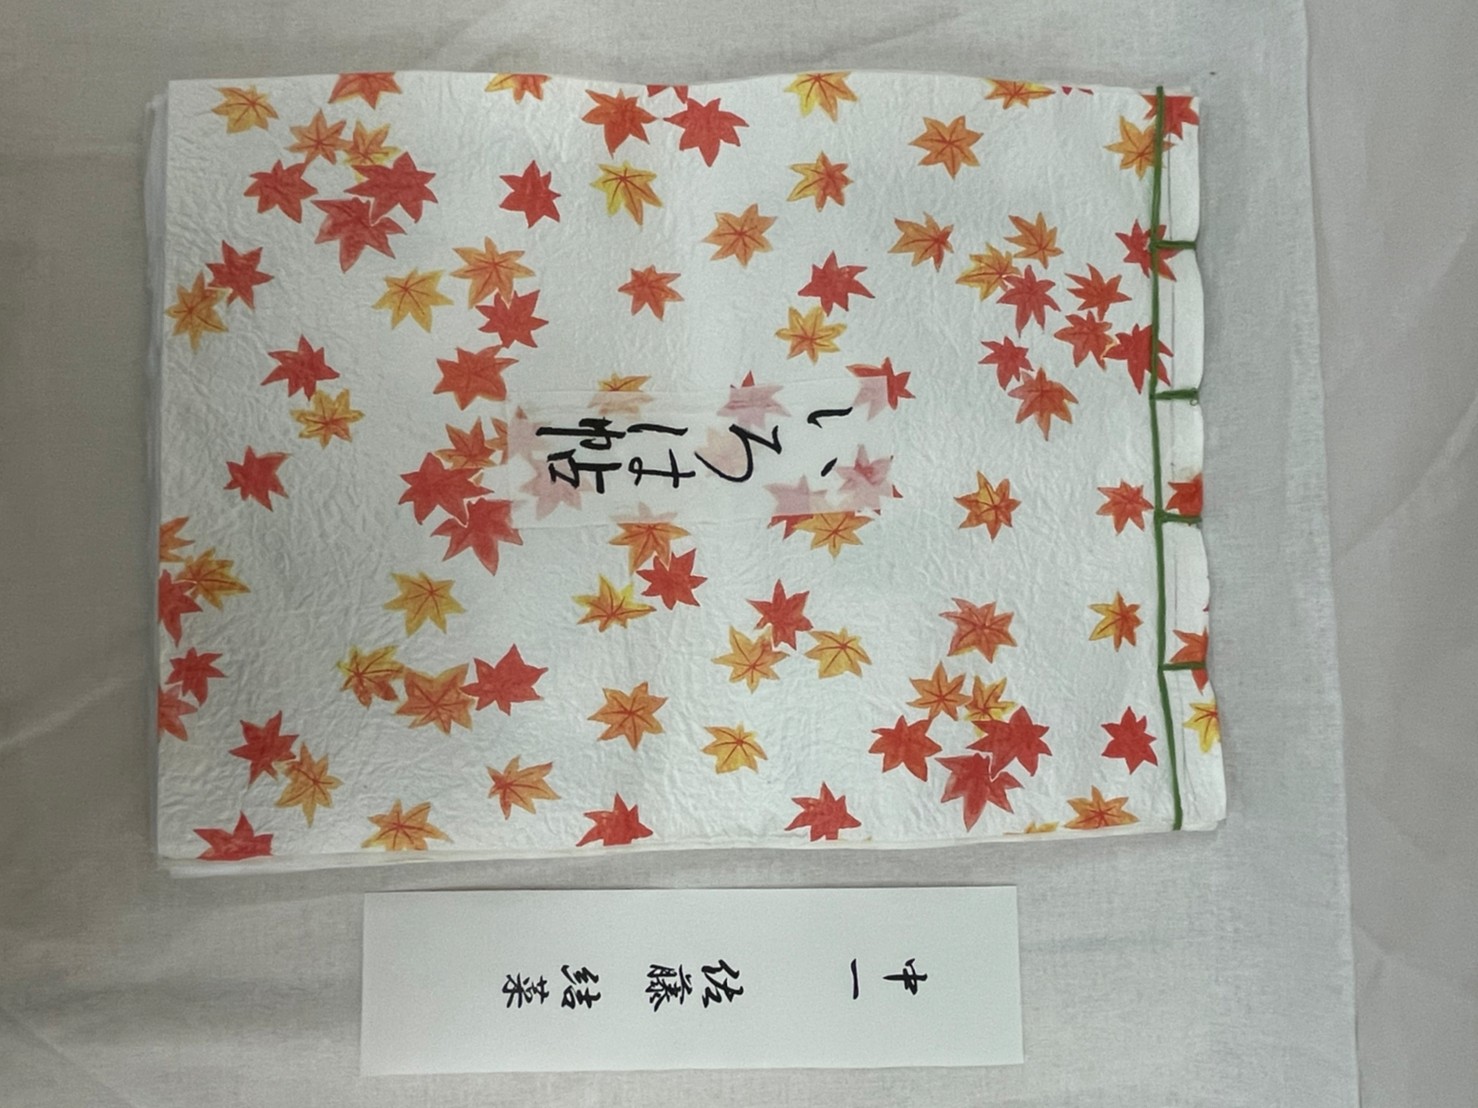 いろは帖
中一 佐藤 結菜